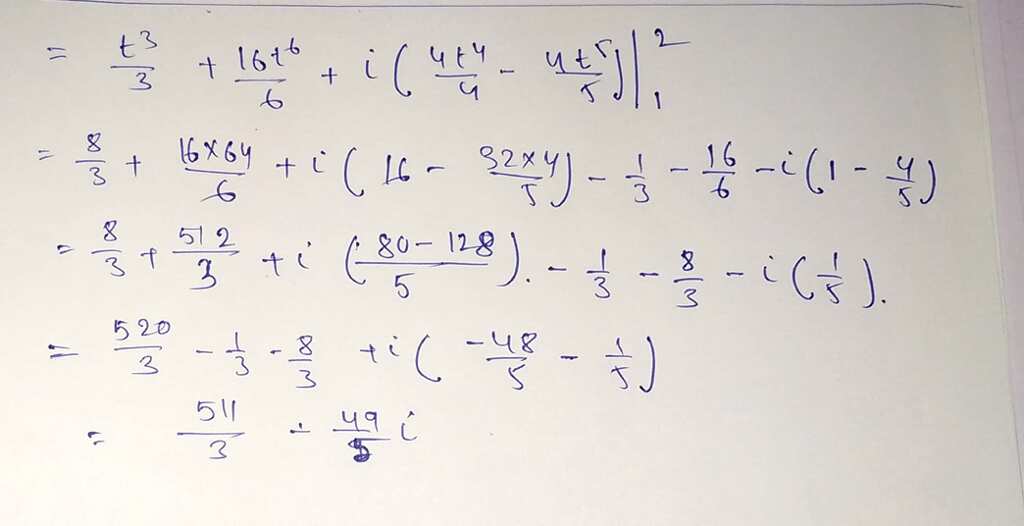 = t³/3 + 16t⁶/6 + i ( 4t⁴/4 - 4t⁵/5 ) |₁²
= 8/3 + 16×64/6 + i ( 16 - 32×4/5 ) - 1/3 - 16/6 - i ( 1 - 4/5 )
= 8/3 + 512/3 + i ( 80-128/5 ). - 1/3 - 8/3 - i ( 1/5 ).
= 520/3 - 1/3 - 8/3 + i ( -48/5 - 1/5 )
= 511/3 - 49/5 i